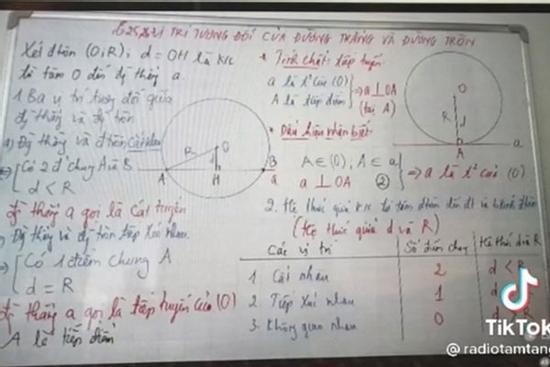 §25,26 VỊ TRÍ TƯƠNG ĐỐI CỦA ĐƯỜNG THẲNG VÀ ĐƯỜNG TRÒN
Xét đtròn (O;R); d = OH là k/c
từ tâm O đến đg thẳng a.
1. Ba vị trí tương đối giữa
đg thẳng và đg tròn
a) Đg thẳng và đtròn cắt nhau
⇔ { Có 2 đ' chung A và B
d < R
Đg thẳng a gọi là cát tuyến
Đg thẳng và đg tròn tiếp xúc nhau
⇔ { Có 1 điểm chung A
d = R
Đg thẳng a gọi là tiếp tuyến của (O)
A là tiếp điểm
R
O
A
H
B
a
* Tính chất: tiếp tuyến
a là t² của (O)
A là tiếp điểm
} ⇒ a ⊥ OA
(tại A)
* Dấu hiệu nhận biết
A ∈ (O); A ∈ a
a ⊥ OA ②
} ⇒ a là t² của (O)
O
R
d
A
a
2. Hệ thức giữa k/c từ tâm đtròn đến đt và bkính đtròn
(Hệ thức giữa d và R)
Các vị trí
Số điểm chung
Hệ thức d và R
1 Cắt nhau
2
d < R
2 Tiếp xúc nhau
1
d
3. Không giao nhau
0
d
TikTok
@radiotamtano